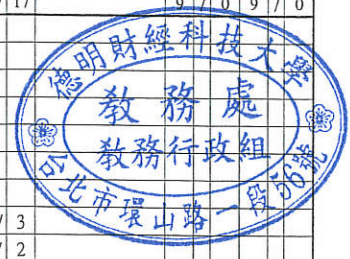 / 17 9 / 0 9 / 0
德明財經科技大學
教務處
教務行政組
台北市環山路一段56號
/ 3
/ 2